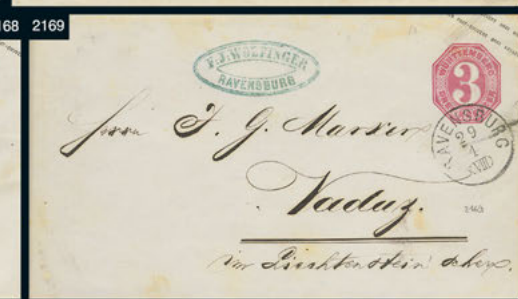 168 2169
F. J. WOLFINGER
RAVENSBURG
WÜRTTEMBERG
3
RAVENSBURG
29
1
Herrn J. G. Marxer
Vaduz.
im Liechtenstein'schen.